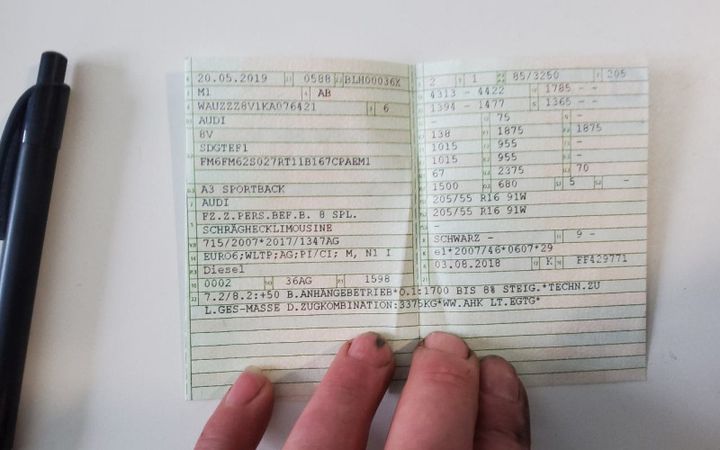 20.05.2019 0588 BLH00036K
M1 AB
WAUZZZ8V1KA076421 6
AUDI
8V
SDGTEF1
FM6FM62S027RT11B167CPAEM1
A3 SPORTBACK
AUDI
FZ.Z.PERS.BEF.B. 8 SPL.
SCHRÄGHECKLIMOUSINE
715/2007*2017/1347AG
EURO6;WLTP;AG;PI/CI; M, N1 I
Diesel
0002 36AG 1598
7.2/8.2:+50 B.ANHÄNGEBETRIEB*O.1:1700 BIS 8% STEIG.*TECHN.ZU
L.GES-MASSE D.ZUGKOMBINATION:3375KG*WW.AHK LT.EGTG*
2 1 85/3250 205
4313 - 4422 1785 - -
1394 - 1477 1365 - -
- 75 -
138 1875 1875
1015 955 -
1015 955 -
67 2375 70
1500 680 5 -
205/55 R16 91W
205/55 R16 91W
-
SCHWARZ - 9 -
e1*2007/46*0607*29
03.08.2018 K FF429771